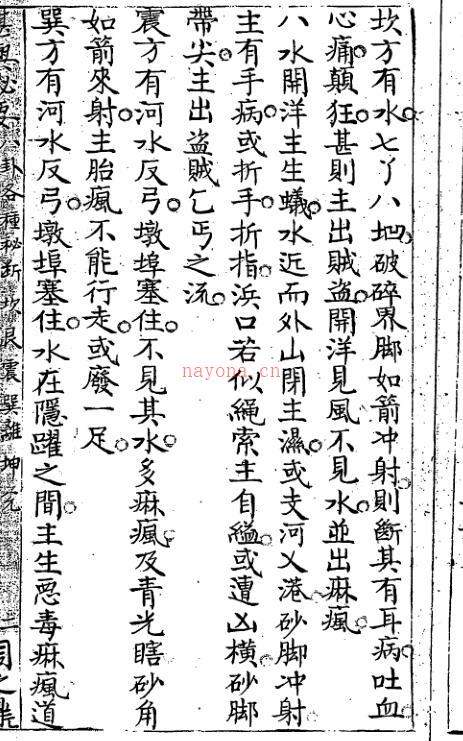 坎方有水七丫八凹破碎界脚如箭冲射則斷其有耳病吐血
心痛顛狂甚則主出賊盜開洋見風不見水並出痳瘋
八水開洋主生蟻水近而外山閉主濕或支河乂港砂脚冲射
主有手病或折手折指浜口若似繩索主自縊或遭凶橫砂脚
帶尖主出盜賊乞丐之流
震方有河水反弓墩埠塞住不見其水多痳瘋及青光瞎砂角
如箭來射主胎瘋不能行走或廢一足
巽方有河水反弓墩埠塞住水在隱躍之間主生惡毒痳瘋道
八卦各種秘斷坎艮震巽離坤兌
nayona.cn